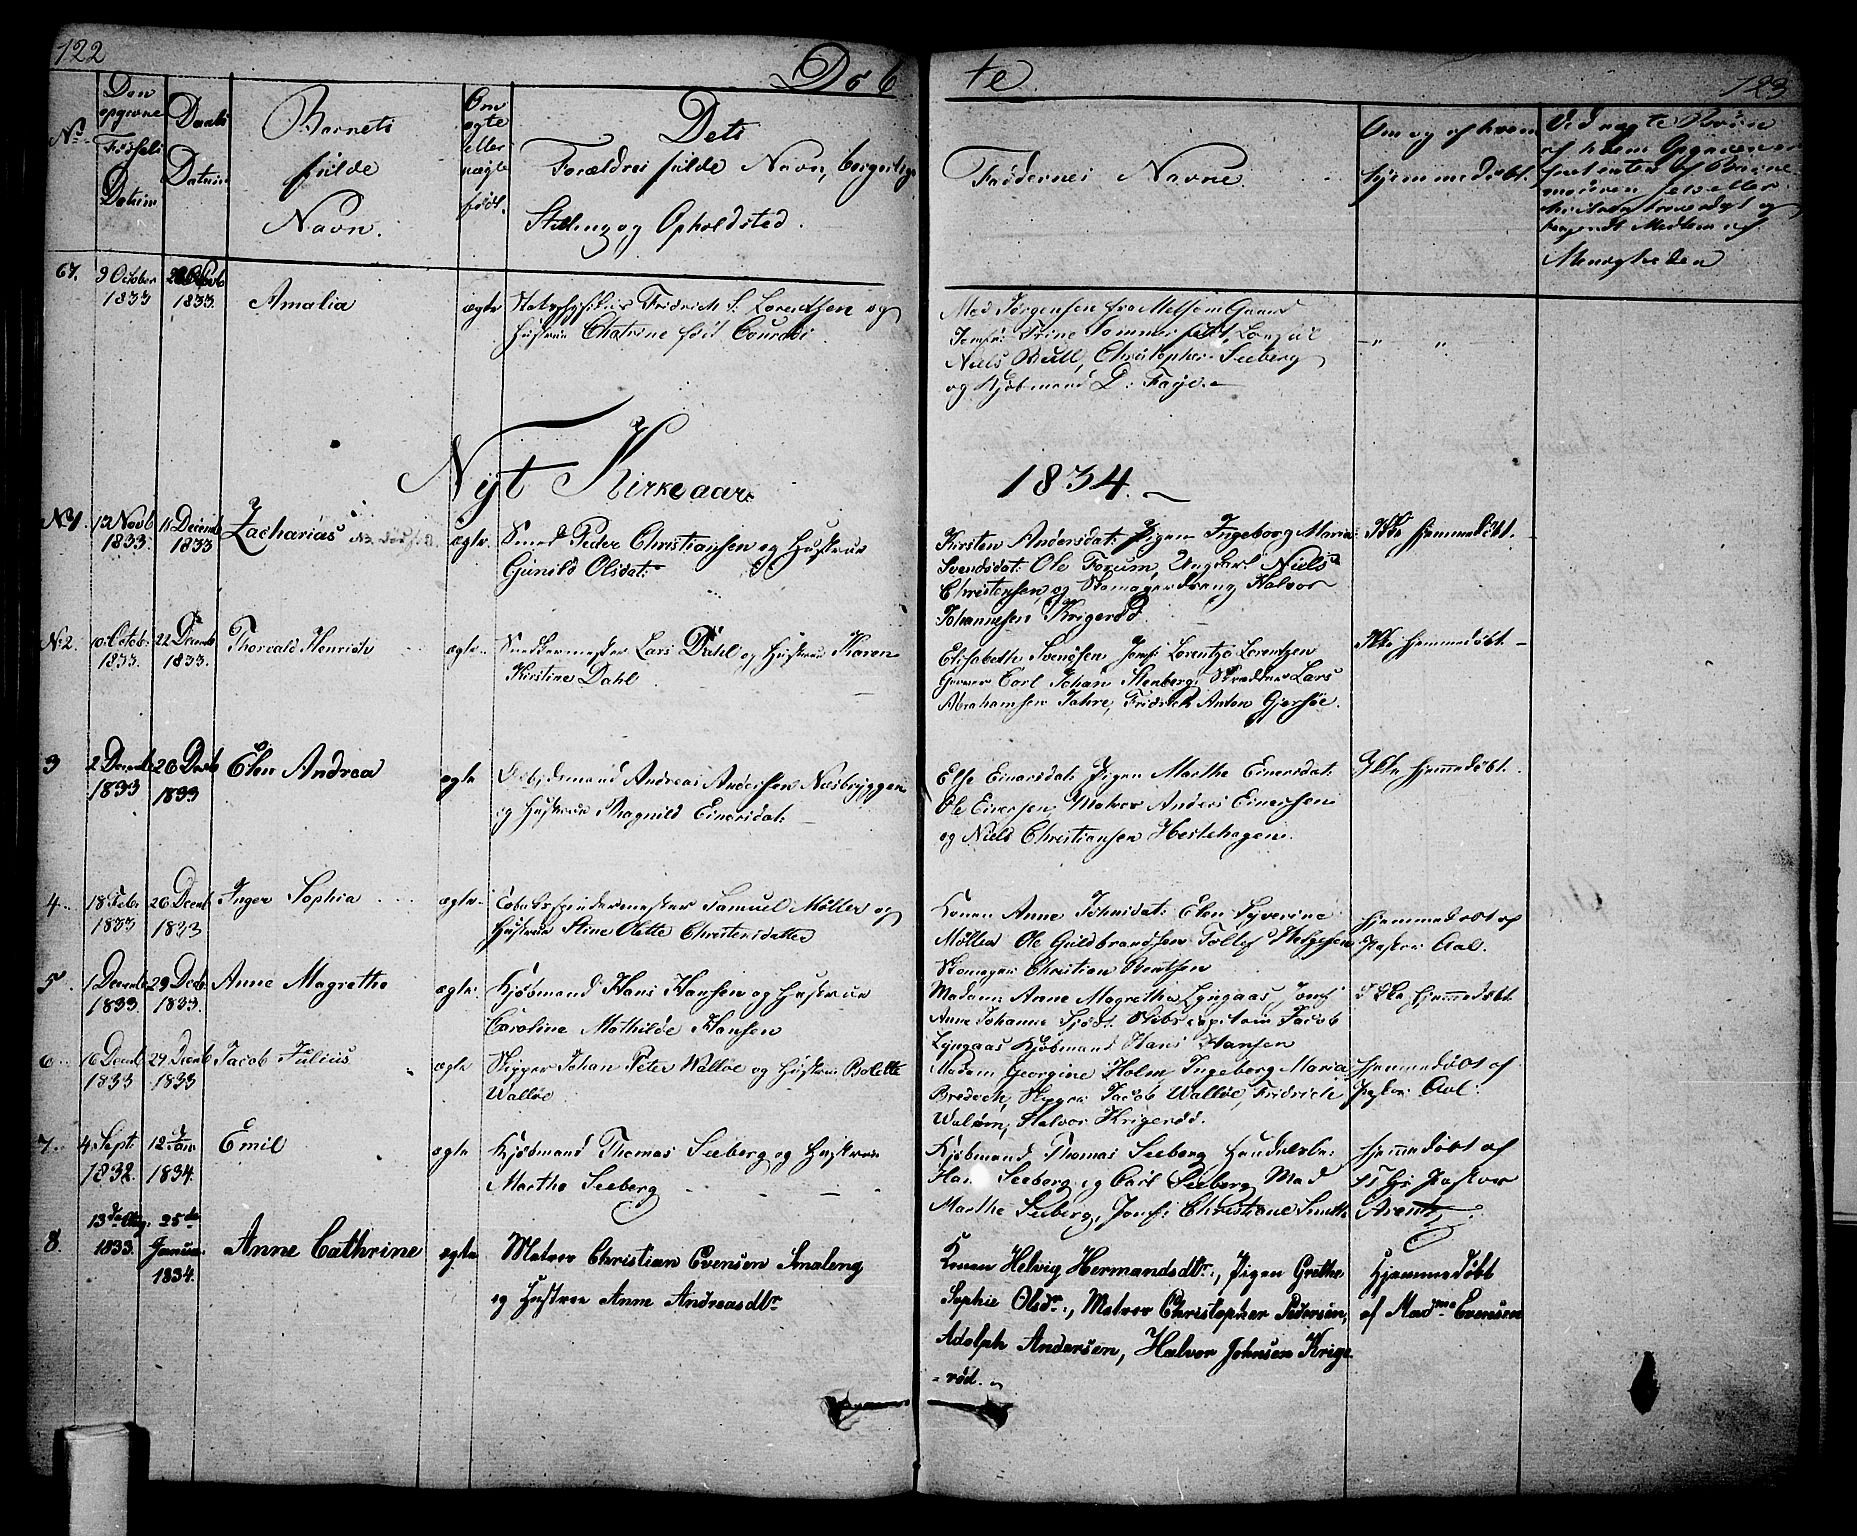 122
Døb
te
123
No
Den
opgivne
Fødsels
Datum
Daabs
Datum
Barnets
fulde
Navn.
Om
ægte
eller
uægte
født.
Dets
Forældres fulde Navn, borgerlige
Stilling og Opholdsted.
Faddernes Navne.
Om og af hvem
hjemmedøbt.
67.
9 October
1833
1833
Amalia
ægte
Fridrich S. Lorentzen og
Hustrue Chatrine født Conradi
Jomfr: Trine Sommer
Niels Bull, Christopher Seeberg
og Kjøbmand D: Faye.
Nyt Kirkeaar
1834.
No 1.
12 Novb
1833.
11 Decemb
1833
Zacharias
ægte.
Smed Peder Christiansen og Hustrue
Gunild Olsdat:
Kirsten Andersdat: Pigen Ingeborg Maria
Svendsdat: Ole Forum, Ungkarl Niels
Christensen, og Skomagerdreng Halvor
Johannesen Krigerød.
Ikke hjemmedøbt.
No 2.
10 Octob:
1833.
22 Decemb
1833.
Thorvald Henrich
ægte.
Snedkermester Lars Dahl og Hustrue Karen
Kirstine Dahl
Elisabeth Svendsen Jomf: Lorentze Lorentzen
Garver Carl Johan Stenberg, Skrædder Lars
Abrahamsen Jahre, Fridrick Anton Gjersøe.
Ikke hjemmedøbt
3
2 Decemb
1833
26 Decb
1833
Elen Andrea
ægte
Arbejdsmand Andreas Andersen Næsbryggen
og Hustrue Magnild Einersdat:
Else Einarsdat: Pigen Marthe Einersdat:
Ole Einersen, Matros Anders Einersen
og Niels Christiansen Hestehagen.
Ikke hjemmedøbt.
4
18 Febr
1833
26 Decemb
1833
Inger Sophia
ægte.
Tobaksspindermester Samuel Møller og
Hustrue Stine Olette Christensdatter
Konen Anne Johnsdat: Elen Syverine
Møller Ole Guldbrandsen Tollef Helgesen
Skomager Christian Berntsen
hjemmedøbt af
Pastor Aal.
5
1 Decemb
1833
29 Decb.
1833.
Anne Magrethe
ægte.
Kjøbmand Hans Hansen og Hustrue
Caroline Mathilde Hansen
Madam Anne Magrethe Lyngaas, Jomf
Anne Johanne Fjødt Skibscapitain Jacob
Lyngaas Kjøbmand Hans Hansen
Ikke hjemmedøbt
6
16 Decemb
1833
29 Decemb
1833
Jacob Julius
ægte
Skipper Johan Peter Walløe og Hustrue Bolette
Walløe
Madam Georgine Holm Ingeborg Maria
Bredech, Skipper Jacob Walløe, Fridrich
Waløm, Halvor Krigerød.
Hjemmedøbt af
Pastor Aal.
7.
4 Sept:
1832.
12 Jan
1834.
Emil
ægte
Kjøbmand Thomas Seeberg og Hustrue
Marthe Seeberg
Kjøbmand Thomas Seeberg Handelsb:
Hans Seeberg og Carl Seeberg Mad
Marthe Seeberg, Jomf: Christiane Smith
hjemmedøbt af
Hr Pastor
Arentz
8.
13de Aug:
1833.
25de
Januar
1834.
Anne Cathrine
ægte
Matros Christian Evensen Smaleng
og Hustrue Anne Andreasdtr
Konen Helvig Hermandsdtr., Pigen Grethe
Sophie Olsdr., Matros Christopher Pedersen,
Adolph Andersen, Halvor Johnsen Krige-
-rød.
Hjemmedøbt
af Madme Evensen